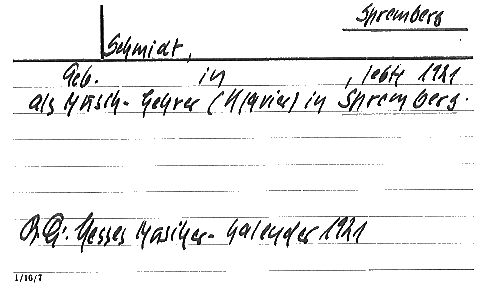 Spremberg
Schmidt,
Geb. in , lebte 1921
als Musik-Lehrer (Klavier) in Spremberg.
Hesses Musiker-Kalender 1921
1/16/7